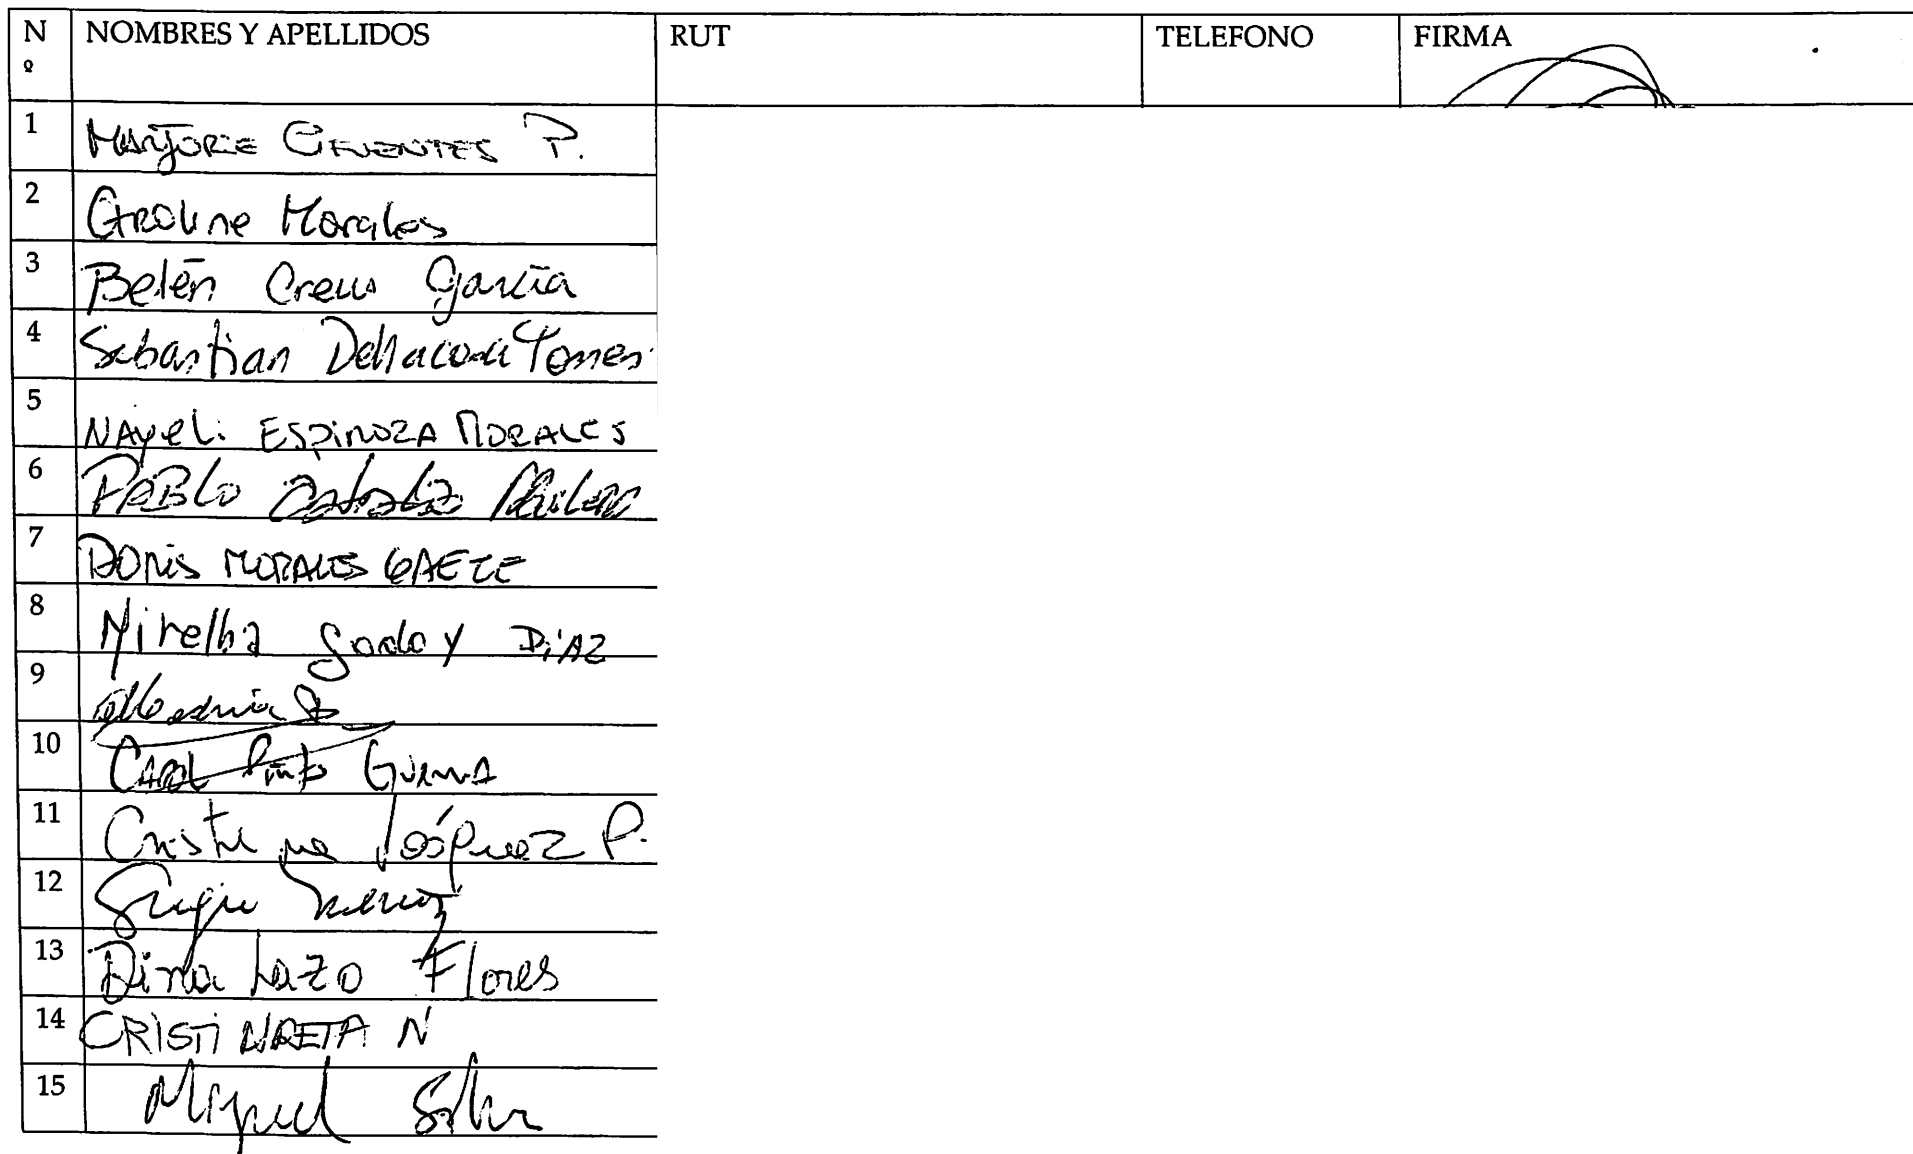 Nº NOMBRES Y APELLIDOS RUT TELEFONO FIRMA
1 MARJORIE CIFUENTES P.
2 CAROLINE Morales
3 Belén Creus García
4 Sebastian Torres
5 NAYELI ESPINOZA MORALES
6 PABLO
7 DORIS MORALES GAETE
8 Mirelba Godoy DiAZ
9
10 CAROL Pinto GUERRA
11 P.
12
13 Dina Lazo Flores
14 CRISTI N
15 Miguel Silva